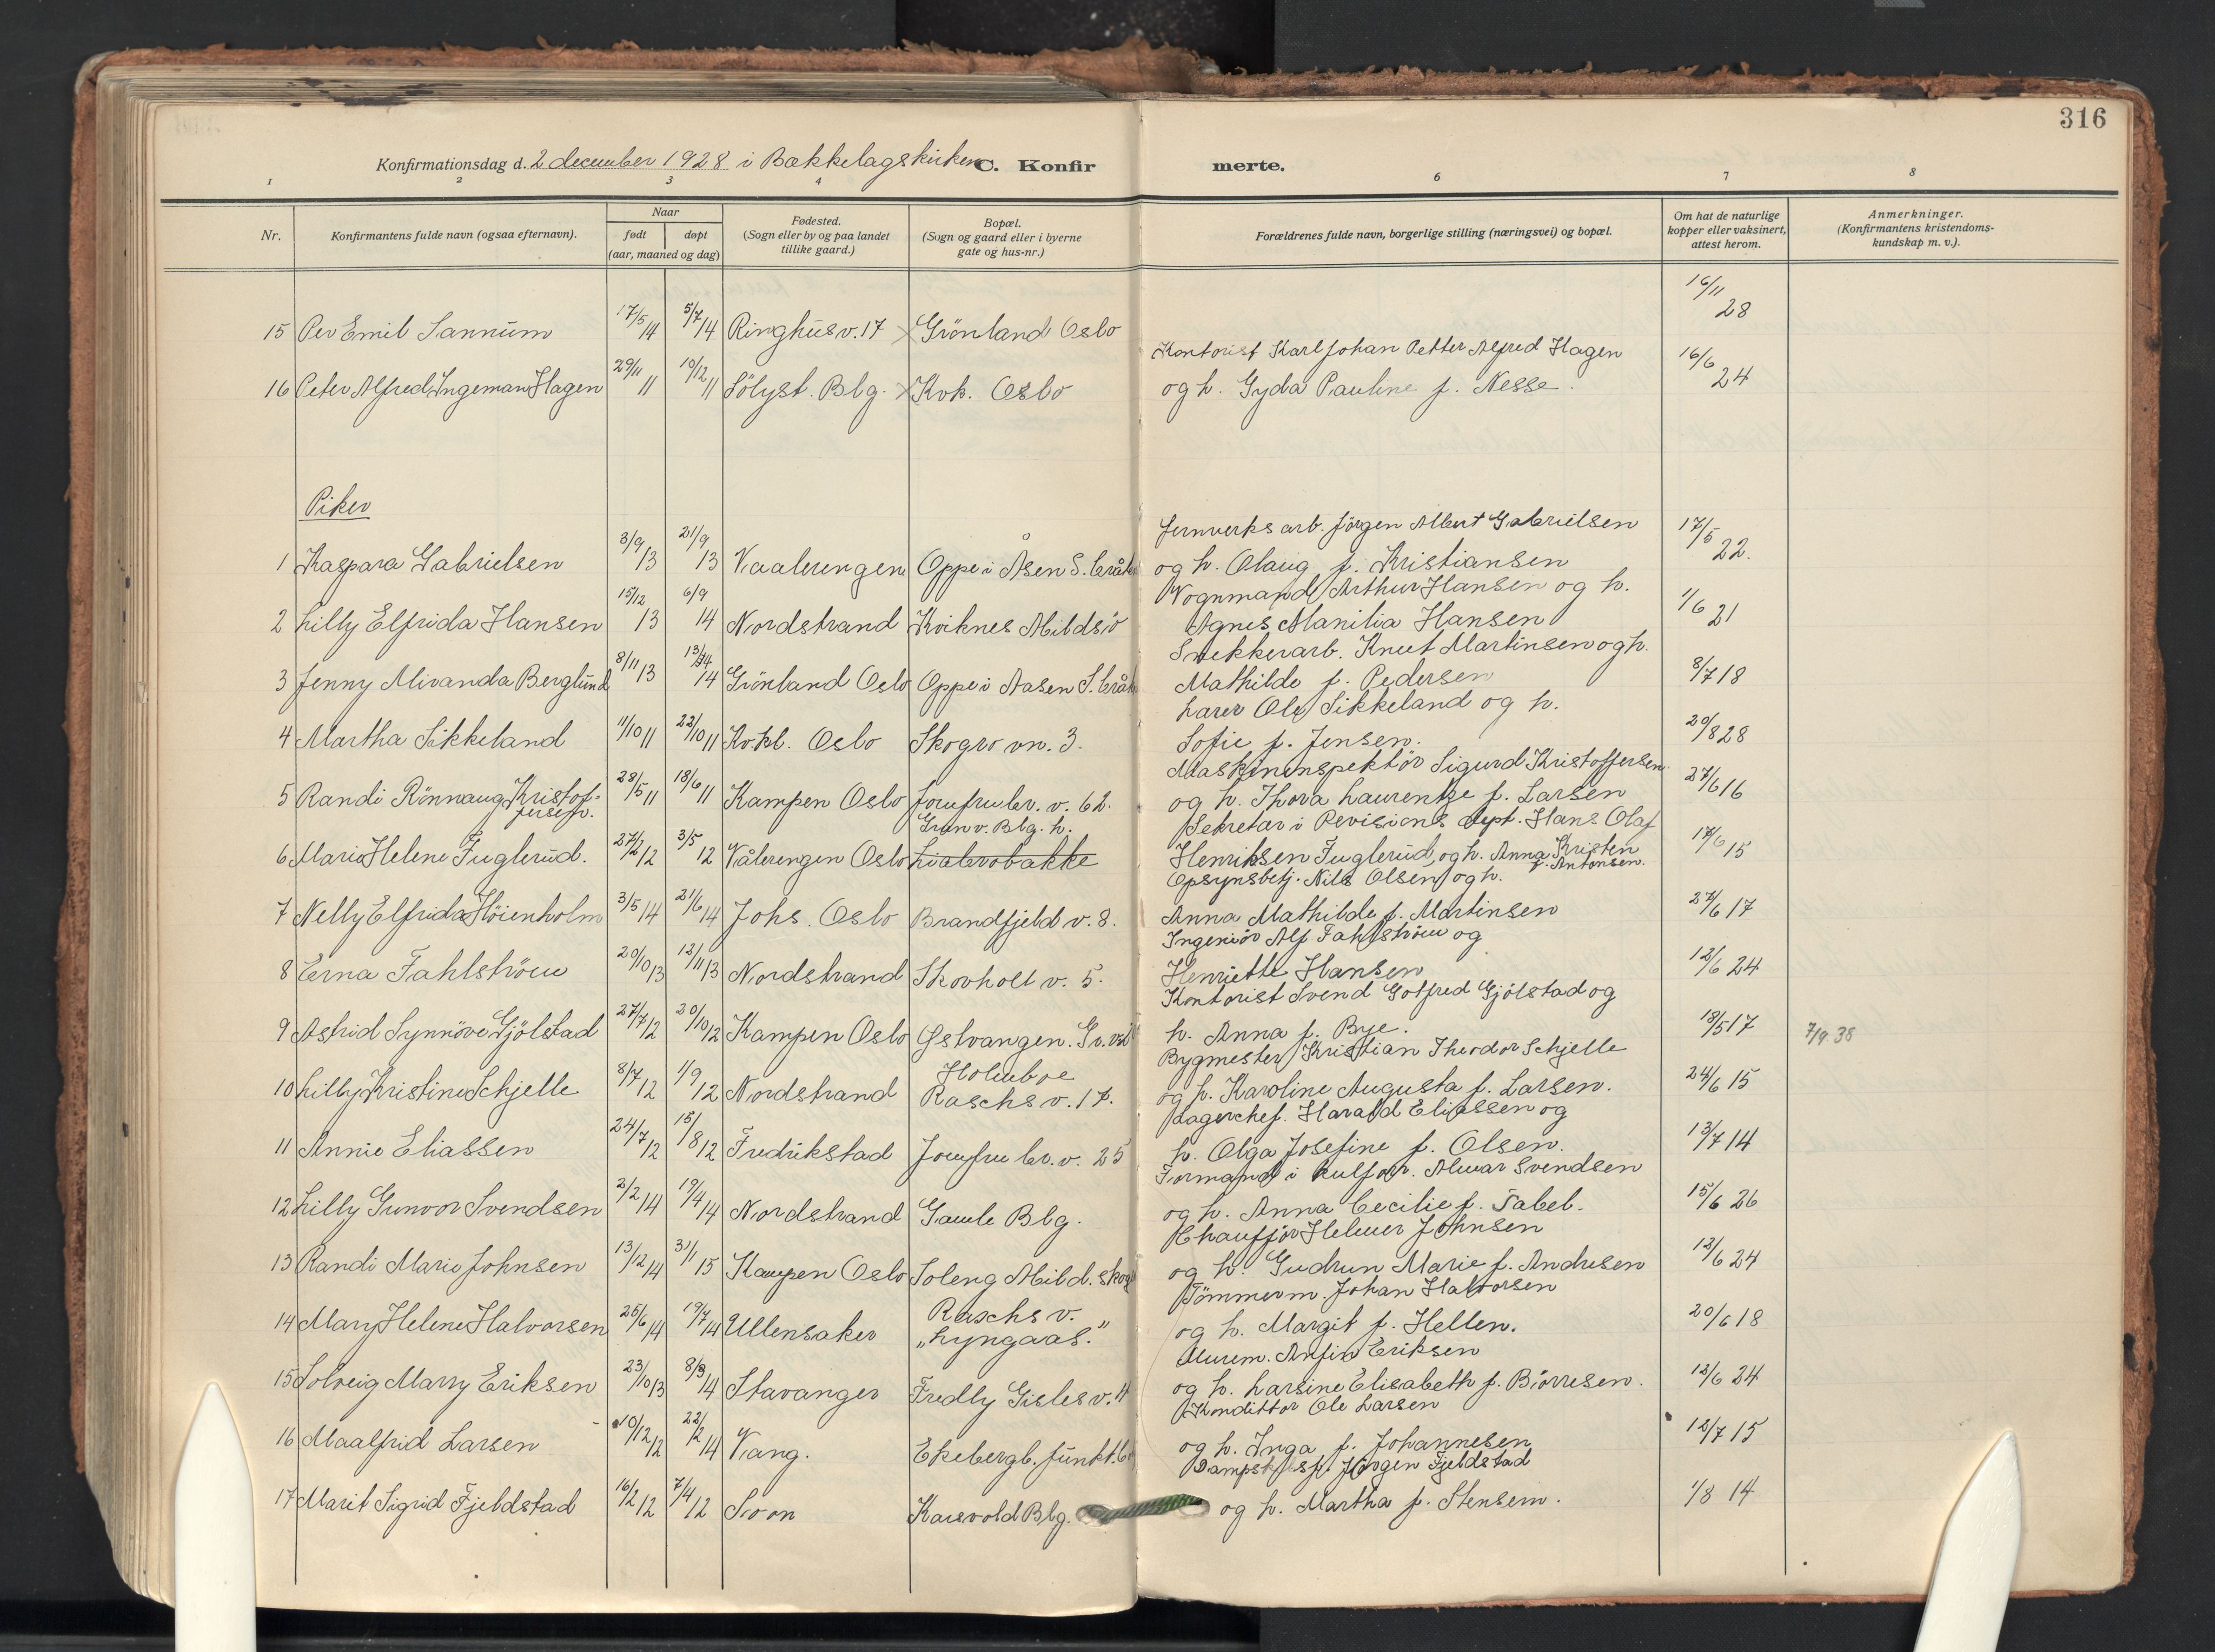 316
Konfirmationsdag d. 2 december 1928 i Bækkelagskirken C. Konfir merte.
1 2 3 4 6 7 8
Nr. Konfirmantens fulde navn (ogsaa efternavn). Naar født døpt (aar, maaned og dag) Fødested. (Sogn eller by og paa landet tillike gaard.) Bopæl. (Sogn og gaard eller i byerne gate og hus-nr.) Forældrenes fulde navn, borgerlige stilling (næringsvei) og bopæl. Om hat de naturlige kopper eller vaksinert, attest herom. Anmerkninger. (Konfirmantens kristendoms- kundskap m. v.).
15 Per Emil Sannum 17/5 14 5/7 14 Ringhusv. 17 × Grönland Oslo 16/11 28
Kontorist Karl Johan Petter Alfred Hagen
16 Peter Alfred Ingeman Hagen 29/11 11 10/12 11 Sölyst. Blg. × Kvk. Oslo og h. Gyda Pauline f. Nesse. 16/6 24
Piker
Jernverksarb. Jörgen Albert Gabrielsen
1 Kaspara Gabrielsen 3/9 13 21/9 13 Vaalerengen Oppe i Åsen og h. Olaug f. Kristiansen 17/5 22.
Vognmand Arthur Hansen og h.
2 Lilly Elfrida Hansen 15/12 13 6/9 14 Nordstrand Kviknes Abildsö Agnes Manilia Hansen 1/6 21
Snekkerarb. Knut Martinsen og h.
3 Jenny Miranda Berglund 8/11 13 14 Grönland Oslo Oppe i Aasen Mathilde f. Pedersen 8/7 18
Lærer Ole Sikkeland og h.
4 Martha Sikkeland 11/10 11 22/10 11 Kvkl. Oslo Skogro vn. 3. Sofie f. Jensen. 29/8 28
Maskininspektör Sigurd Kristoffersen
5 Randi Rönnaug Kristof- 28/5 11 18/6 11 Kampen Oslo Jomfrubr. v. 62. og h. Thora Laurentze f. Larsen 27/6 16
fersen.
Grünv. Blg. h. Sekretær i Revisions dept. Hans Olaf
6 Marie Helene Fuglerud. 27/2 12 3/5 12 Vålerengen Oslo Liabrobakke Henriksen Fuglerud, og h. Anna Kristen 17/6 15
f. Antonsen.
Opsynsbetj. Nils Olsen og h.
7 Nelly Elfrida Höienholm 3/5 14 21/6 14 Johs. Oslo Brandfjeld v. 8. Anna Mathilde f. Martinsen 27/6 17
Ingeniör Alf Fahlström og
8 Erna Fahlström 20/10 13 12/11 13 Nordstrand Skovholt v. 5. Henriette Hansen 12/6 24
Kontorist Svend Gotfred Gjölstad og
9 Astrid Synnöve Gjölstad 27/7 12 20/10 12 Kampen Oslo Östvangen. h. Anna f. Bye. 18/5 17 7/9. 38
Bygmester Kristian Theodor Schjelle
Holmboe
10 Lilly Kristine Schjelle 8/7 12 1/9 12 Nordstrand Raschs v. 17. og h. Karoline Augusta f. Larsen. 24/6 15
Lagerchef. Harald Eliassen og
11 Annie Eliassen 24/7 12 15/8 12 Fredrikstad Jomfrubr. v. 25 h. Olga Josefine f. Olsen. 13/7 14
Formand i kulforr. Almar Svendsen
12 Lilly Gunvor Svendsen 2/2 14 19/4 14 Nordstrand Gamle Blg. og h. Anna Cecilie f. Tabel. 15/6 26
Chauffjör Helmer Johnsen
13 Randi Marie Johnsen 13/12 14 31/1 15 Kampen Oslo Soleng Abild. skog og h. Gudrun Marie f. Andresen 12/6 24
Tömmerm. Johan Halvorsen
Raschs v.
14 Mary Helene Halvorsen 25/6 14 19/7 14 Ullensaker „Lyngaas." og h. Margit f. Hellen. 20/6 18
Murem. Anfin Eriksen
15 Solveig Marry Eriksen 23/10 13 8/3 14 Stavanger Fredly Gisles v. 4 og h. Larsine Elisabeth f. Biörresen. 12/6 24
Kondittor Ole Larsen
16 Maalfrid Larsen 10/12 12 22/2 14 Vang. Ekebergb. og h. Inga f. Johannesen 12/7 15
Jörgen Fjeldstad
17 Marit Sigrid Fjeldstad 16/2 12 7/4 12 Soon Karsvold Blg. og h. Martha f. Stensem. 1/8 14